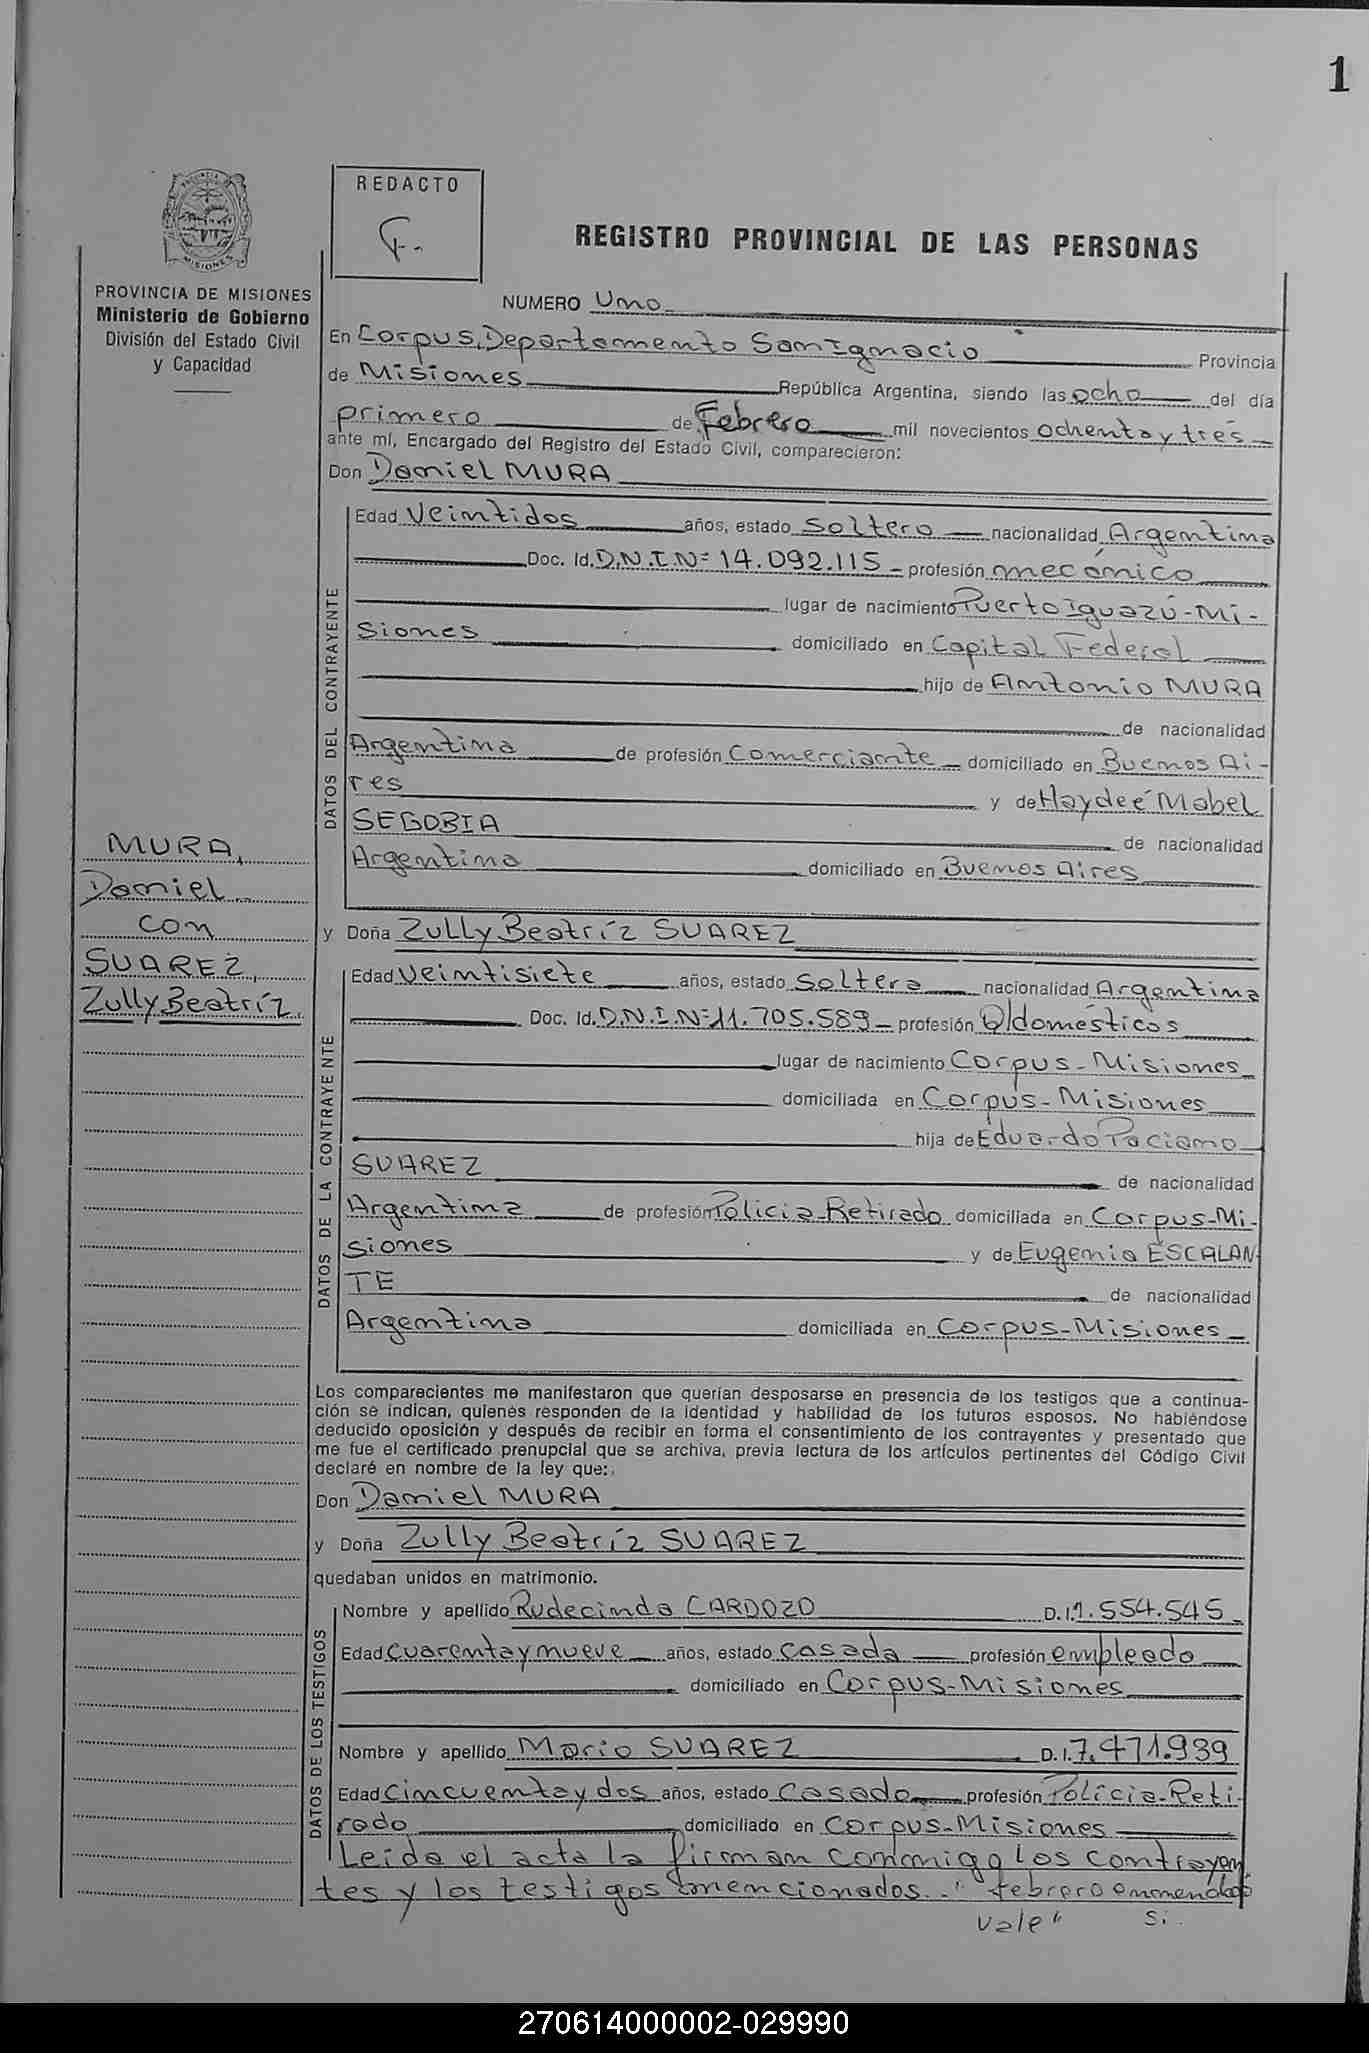 1
REDACTO
REGISTRO PROVINCIAL DE LAS PERSONAS
PROVINCIA DE MISIONES
Ministerio de Gobierno
División del Estado Civil
y Capacidad
NUMERO Uno
En Corpus, Departamento San Ignacio Provincia
de Misiones República Argentina, siendo las ocho del día
primero de Febrero mil novecientos ochenta y tres
ante mí, Encargado del Registro del Estado Civil, comparecieron:
Don Daniel MURA
DATOS DEL CONTRAYENTE
Edad Veintidos años, estado Soltero nacionalidad Argentina
Doc. Id. D.N.I.Nº 14.092.115 profesión mecánico
lugar de nacimiento Puerto Iguazú-Mi-
siones domiciliado en Capital Federal
hijo de Antonio MURA
de nacionalidad
Argentina de profesión Comerciante domiciliado en Buenos Ai-
res y de Haydeé Mabel
SEGOBIA de nacionalidad
Argentina domiciliado en Buenos Aires
MURA,
Daniel
con
SUAREZ,
Zully Beatríz
y Doña Zully Beatríz SUAREZ
DATOS DE LA CONTRAYENTE
Edad Veintisiete años, estado Soltera nacionalidad Argentina
Doc. Id. D.N.I.Nº 11.705.589 profesión Q/domésticos
lugar de nacimiento Corpus-Misiones
domiciliada en Corpus-Misiones
hija de Eduardo Paciano
SUAREZ de nacionalidad
Argentina de profesión Policia Retirado domiciliada en Corpus-Mi-
siones y de Eugenia ESCALAN
TE de nacionalidad
Argentina domiciliada en Corpus-Misiones
Los comparecientes me manifestaron que querían desposarse en presencia de los testigos que a continua-
ción se indican, quienes responden de la identidad y habilidad de los futuros esposos. No habiéndose
deducido oposición y después de recibir en forma el consentimiento de los contrayentes y presentado que
me fue el certificado prenupcial que se archiva, previa lectura de los artículos pertinentes del Código Civil
declaré en nombre de la ley que:
Don Daniel MURA
y Doña Zully Beatríz SUAREZ
quedaban unidos en matrimonio.
DATOS DE LOS TESTIGOS
Nombre y apellido Rudecinda CARDOZO D.I.1.554.545
Edad Cuarenta y nueve años, estado Casada profesión empleado
domiciliado en Corpus-Misiones
Nombre y apellido Mario SUAREZ D.I.7.471.939
Edad Cincuenta y dos años, estado Casado profesión Policia-Reti-
rado domiciliado en Corpus-Misiones
Leida el acta la firman conmigo los contrayen
tes y los testigos mencionados.." febrero enmendado
vale"
270614000002-029990